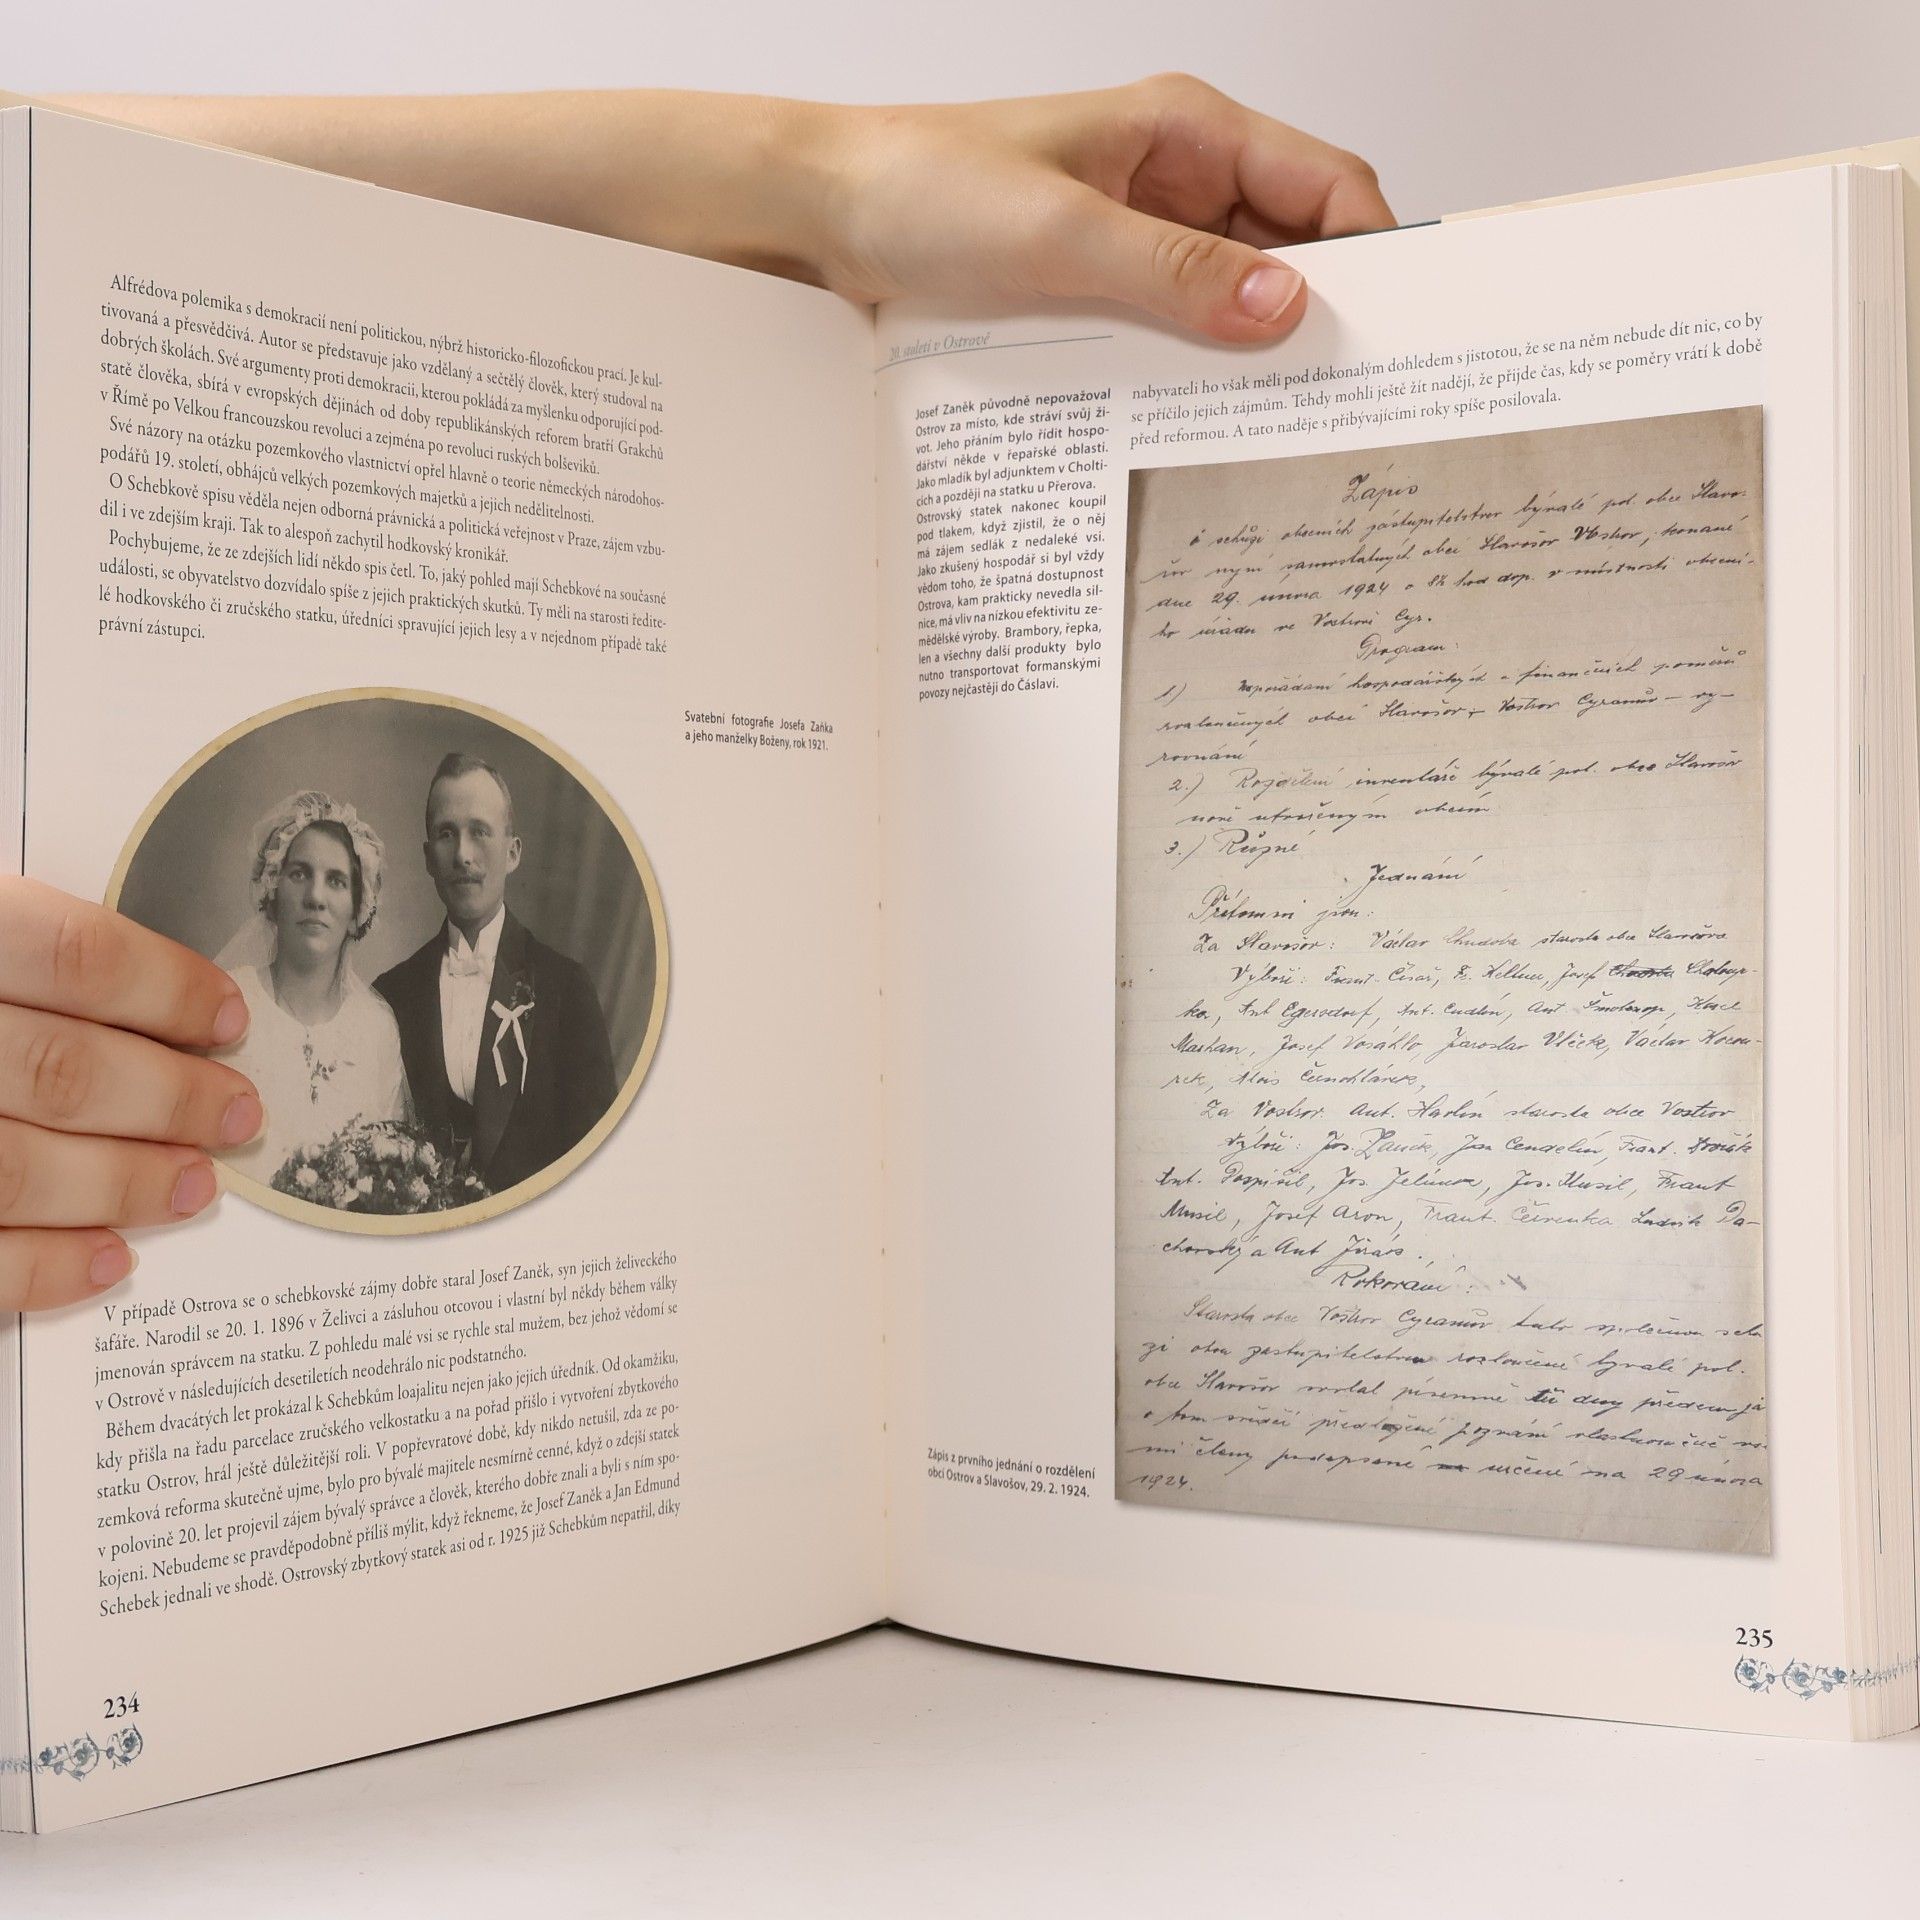 Alfrédova polemika s demokracií není politickou, nýbrž historicko-filozofickou prací. Je kul-
tivovaná a přesvědčivá. Autor se představuje jako vzdělaný a sečtělý člověk, který studoval na
dobrých školách. Své argumenty proti demokracii, kterou pokládá za myšlenku odporující pod-
statě člověka, sbírá v evropských dějinách od doby republikánských reforem bratří Grakchů
v Římě po Velkou francouzskou revoluci a zejména po revoluci ruských bolševiků.
Své názory na otázku pozemkového vlastnictví opřel hlavně o teorie německých národohos-
podářů 19. století, obhájců velkých pozemkových majetků a jejich nedělitelnosti.
O Schebkově spisu věděla nejen odborná právnická a politická veřejnost v Praze, zájem vzbu-
dil i ve zdejším kraji. Tak to alespoň zachytil hodkovský kronikář.
Pochybujeme, že ze zdejších lidí někdo spis četl. To, jaký pohled mají Schebkové na současné
události, se obyvatelstvo dozvídalo spíše z jejich praktických skutků. Ty měli na starosti ředite-
lé hodkovského či zručského statku, úředníci spravující jejich lesy a v nejednom případě také
právní zástupci.
Svatební fotografie Josefa Zaňka
a jeho manželky Boženy, rok 1921.
V případě Ostrova se o schebkovské zájmy dobře staral Josef Zaněk, syn jejich želiveckého
šafáře. Narodil se 20. 1. 1896 v Želivci a zásluhou otcovou i vlastní byl někdy během války
jmenován správcem na statku. Z pohledu malé vsi se rychle stal mužem, bez jehož vědomí se
v Ostrově v následujících desetiletích neodehrálo nic podstatného.
Během dvacátých let prokázal k Schebkům loajalitu nejen jako jejich úředník. Od okamžiku,
kdy přišla na řadu parcelace zručského velkostatku a na pořad přišlo i vytvoření zbytkového
statku Ostrov, hrál ještě důležitější roli. V popřevratové době, kdy nikdo netušil, zda ze po-
zemková reforma skutečně ujme, bylo pro bývalé majitele nesmírně cenné, když o zdejší statek
v polovině 20. let projevil zájem bývalý správce a člověk, kterého dobře znali a byli s ním spo-
kojeni. Nebudeme se pravděpodobně příliš mýlit, když řekneme, že Josef Zaněk a Jan Edmund
Schebek jednali ve shodě. Ostrovský zbytkový statek asi od r. 1925 již Schebkům nepatřil, díky
234
20. století v Ostrově
Josef Zaněk původně nepovažoval
Ostrov za místo, kde stráví svůj ži-
vot. Jeho přáním bylo řídit hospo-
dářství někde v řepařské oblasti.
Jako mladík byl adjunktem v Cholti-
cích a později na statku u Přerova.
Ostrovský statek nakonec koupil
pod tlakem, když zjistil, že o něj
má zájem sedlák z nedaleké vsi.
Jako zkušený hospodář si byl vždy
vědom toho, že špatná dostupnost
Ostrova, kam prakticky nevedla sil-
nice, má vliv na nízkou efektivitu ze-
mědělské výroby. Brambory, řepka,
len a všechny další produkty bylo
nutno transportovat formanskými
povozy nejčastěji do Čáslavi.
nabyvateli ho však měli pod dokonalým dohledem s jistotou, že se na něm nebude dít nic, co by
se příčilo jejich zájmům. Tehdy mohli ještě žít nadějí, že přijde čas, kdy se poměry vrátí k době
před reformou. A tato naděje s přibývajícími roky spíše posilovala.
Zápis
o schůzi obecních zástupitelstev bývalé pol. obce Slavo-
šov nyní samostatných obcí Slavošov Vostrov, konané
dne 29. února 1924 o 8½ hod dop. v místnosti obecní-
ho úřadu ve Vostrově Cyr.
Program:
1) Uspořádání hospodářských a finančních poměrů
rozloučených obcí Slavošov Vostrov Cyranův – vy-
rovnání
2.) Rozdělení inventáře bývalé pol. obce Slavošov
nově utvořeným obcím
3.) Různé
Jednání
Přítomni jsou:
Za Slavošov: Václav Chudoba starosta obce Slavošova
Výboři: Frant. Císař, Fr. Kellner, Josef Chaloup-
ka, Ant Egersdorf, Ant. Cudlín, Ant
Mashan, Josef Vosáhlo, Jaroslav Vlček, Václav Kocou-
rek, Alois Černohlávek,
Za Vostrov: Ant. Havlín starosta obce Vostrov
Výboři: Jos. Zaněk, Jan Cendelín, Frant.
Ant. Pospíšil, Jos. Jelínek, Jos. Musil, Frant
Musil, Josef Aron, Frant. Červenka Ludvík Da-
chovský a Ant Jiráš.
Rokování:
Starosta obce Vostrov Cyranův tuto společnou schů
zi obou zastupitelstev rozloučené bývalé pol.
obce Slavošov svolal písemně tři dny předem jak
o tom svědčí předložené pozvání vlastnoručně vše
mi členy podepsané určené na 29 února
1924.
Zápis z prvního jednání o rozdělení
obcí Ostrov a Slavošov, 29. 2. 1924.
235